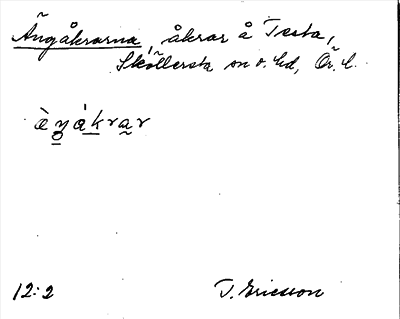 Ängåkrarna, åkrar å Testa,
Sköllersta sn o. hd, Ör. l.
èŋákrar
12:2 T. Ericsson